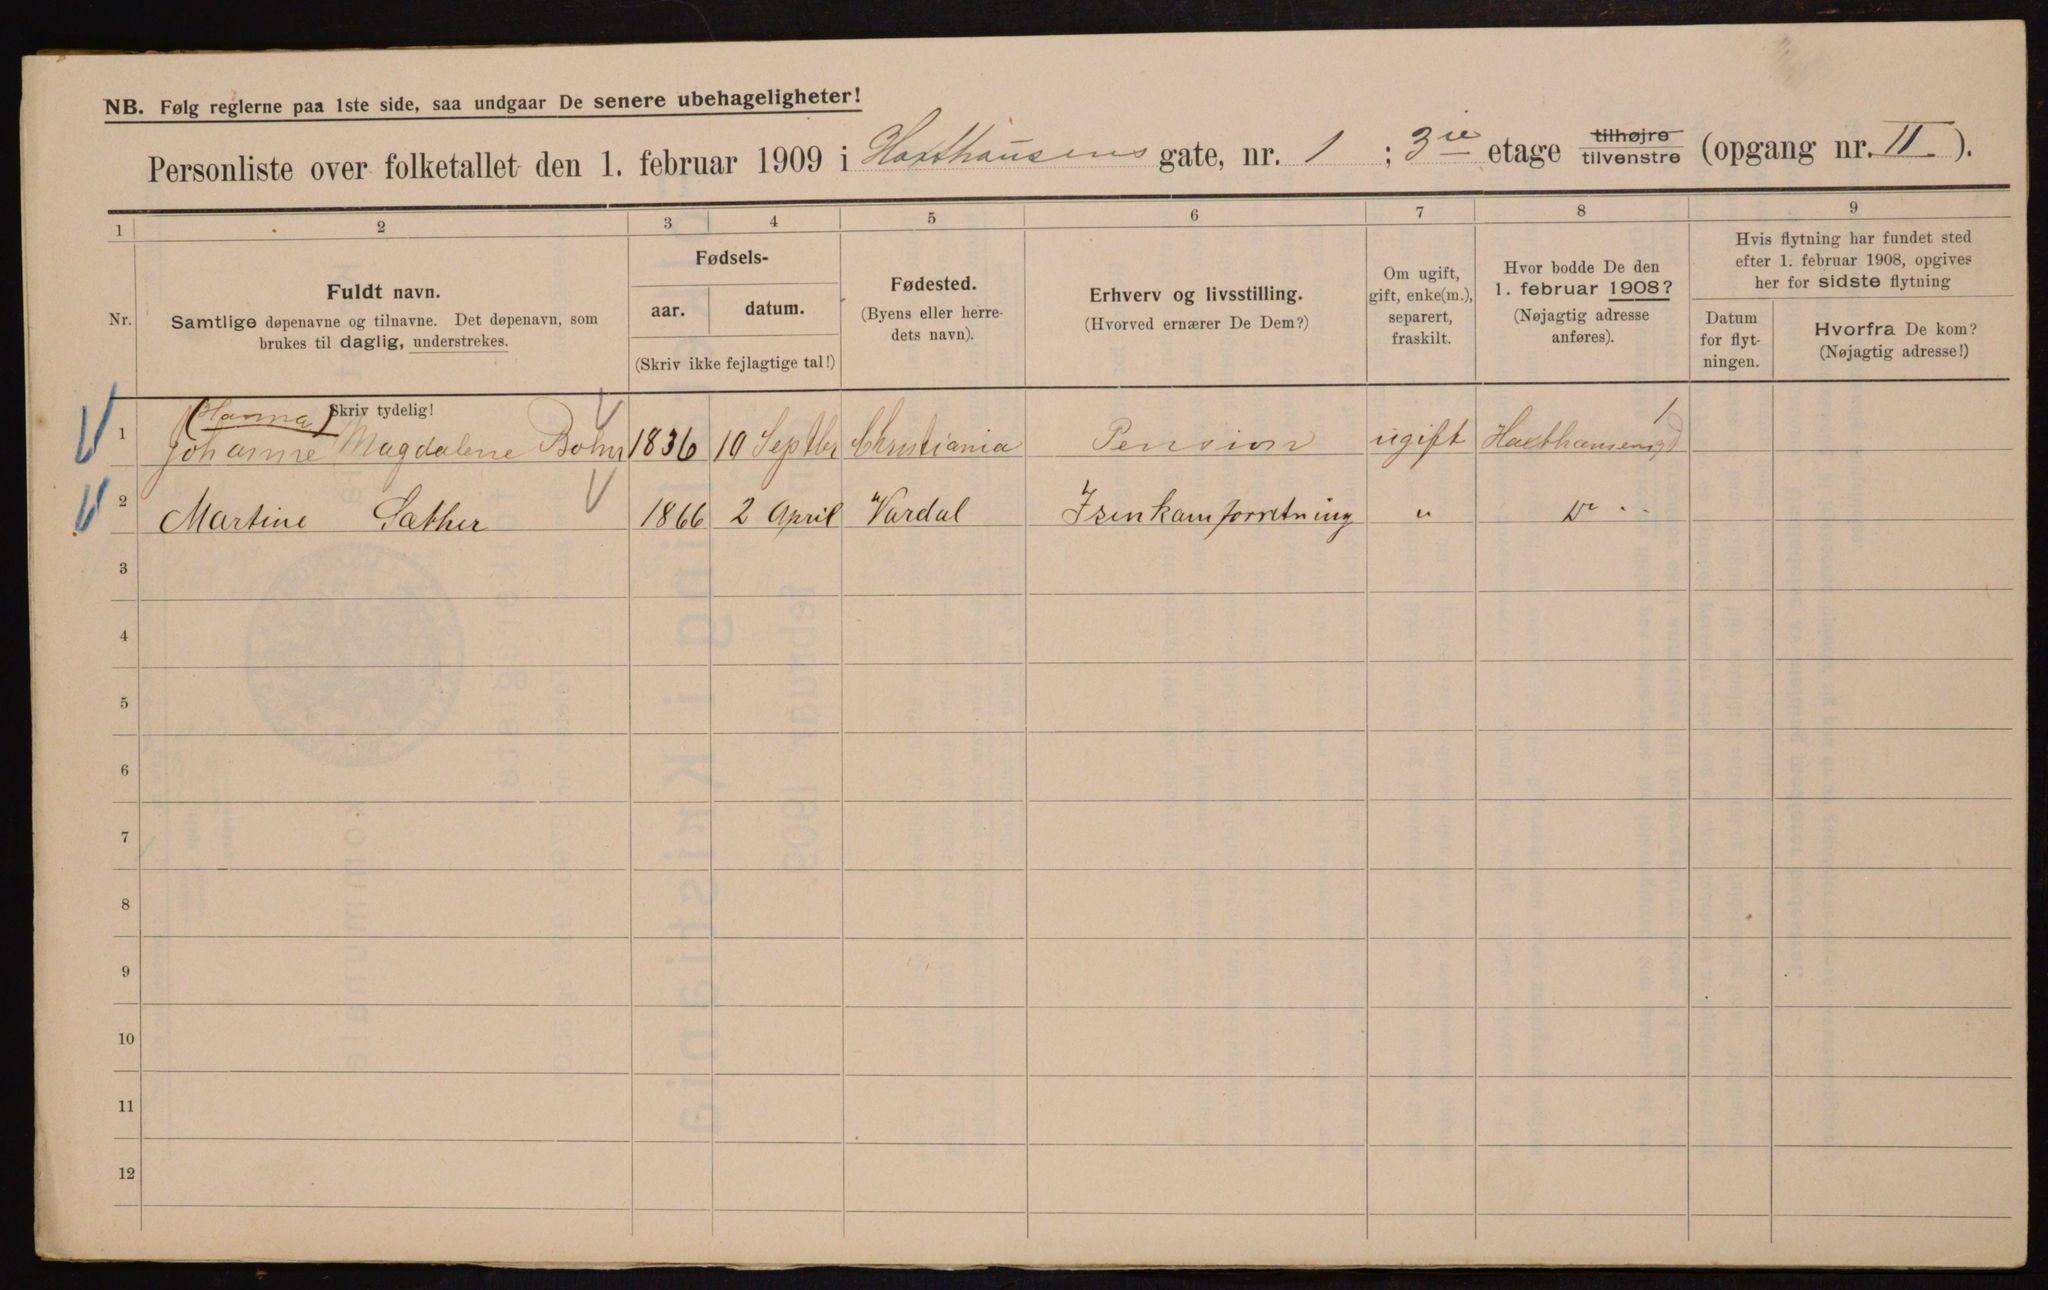 NB. Følg reglerne paa 1ste side, saa undgaar De senere ubehageligheter!
Personliste over folketallet den 1. februar 1909 i Haxthausens gate, nr. 1 ; 3die etage tilhøjre/tilvenstre (opgang nr. II).
1 2 3 4 5 6 7 8 9
Nr.
Fuldt navn.
Samtlige døpenavne og tilnavne. Det døpenavn, som
brukes til daglig, understrekes.
Fødsels-
aar. datum.
(Skriv ikke fejlagtige tal!)
Fødested.
(Byens eller herre-
dets navn).
Erhverv og livsstilling.
(Hvorved ernærer De Dem?)
Om ugift,
gift, enke(m.),
separert,
fraskilt.
Hvor bodde De den
1. februar 1908?
(Nøjagtig adresse
anføres).
Hvis flytning har fundet sted
efter 1. februar 1908, opgives
her for sidste flytning
Datum
for flyt-
ningen.
Hvorfra De kom?
(Nøjagtig adresse!)
Skriv tydelig!
(Hanna)
1 Johanne Magdalene Bohr 1836 10 Septber Christiania Pension ugift Haxthausensgd 1
2 Martine Sæther 1866 2 April Vardal Isenkamforretning " Do " "
3
4
5
6
7
8
9
10
11
12